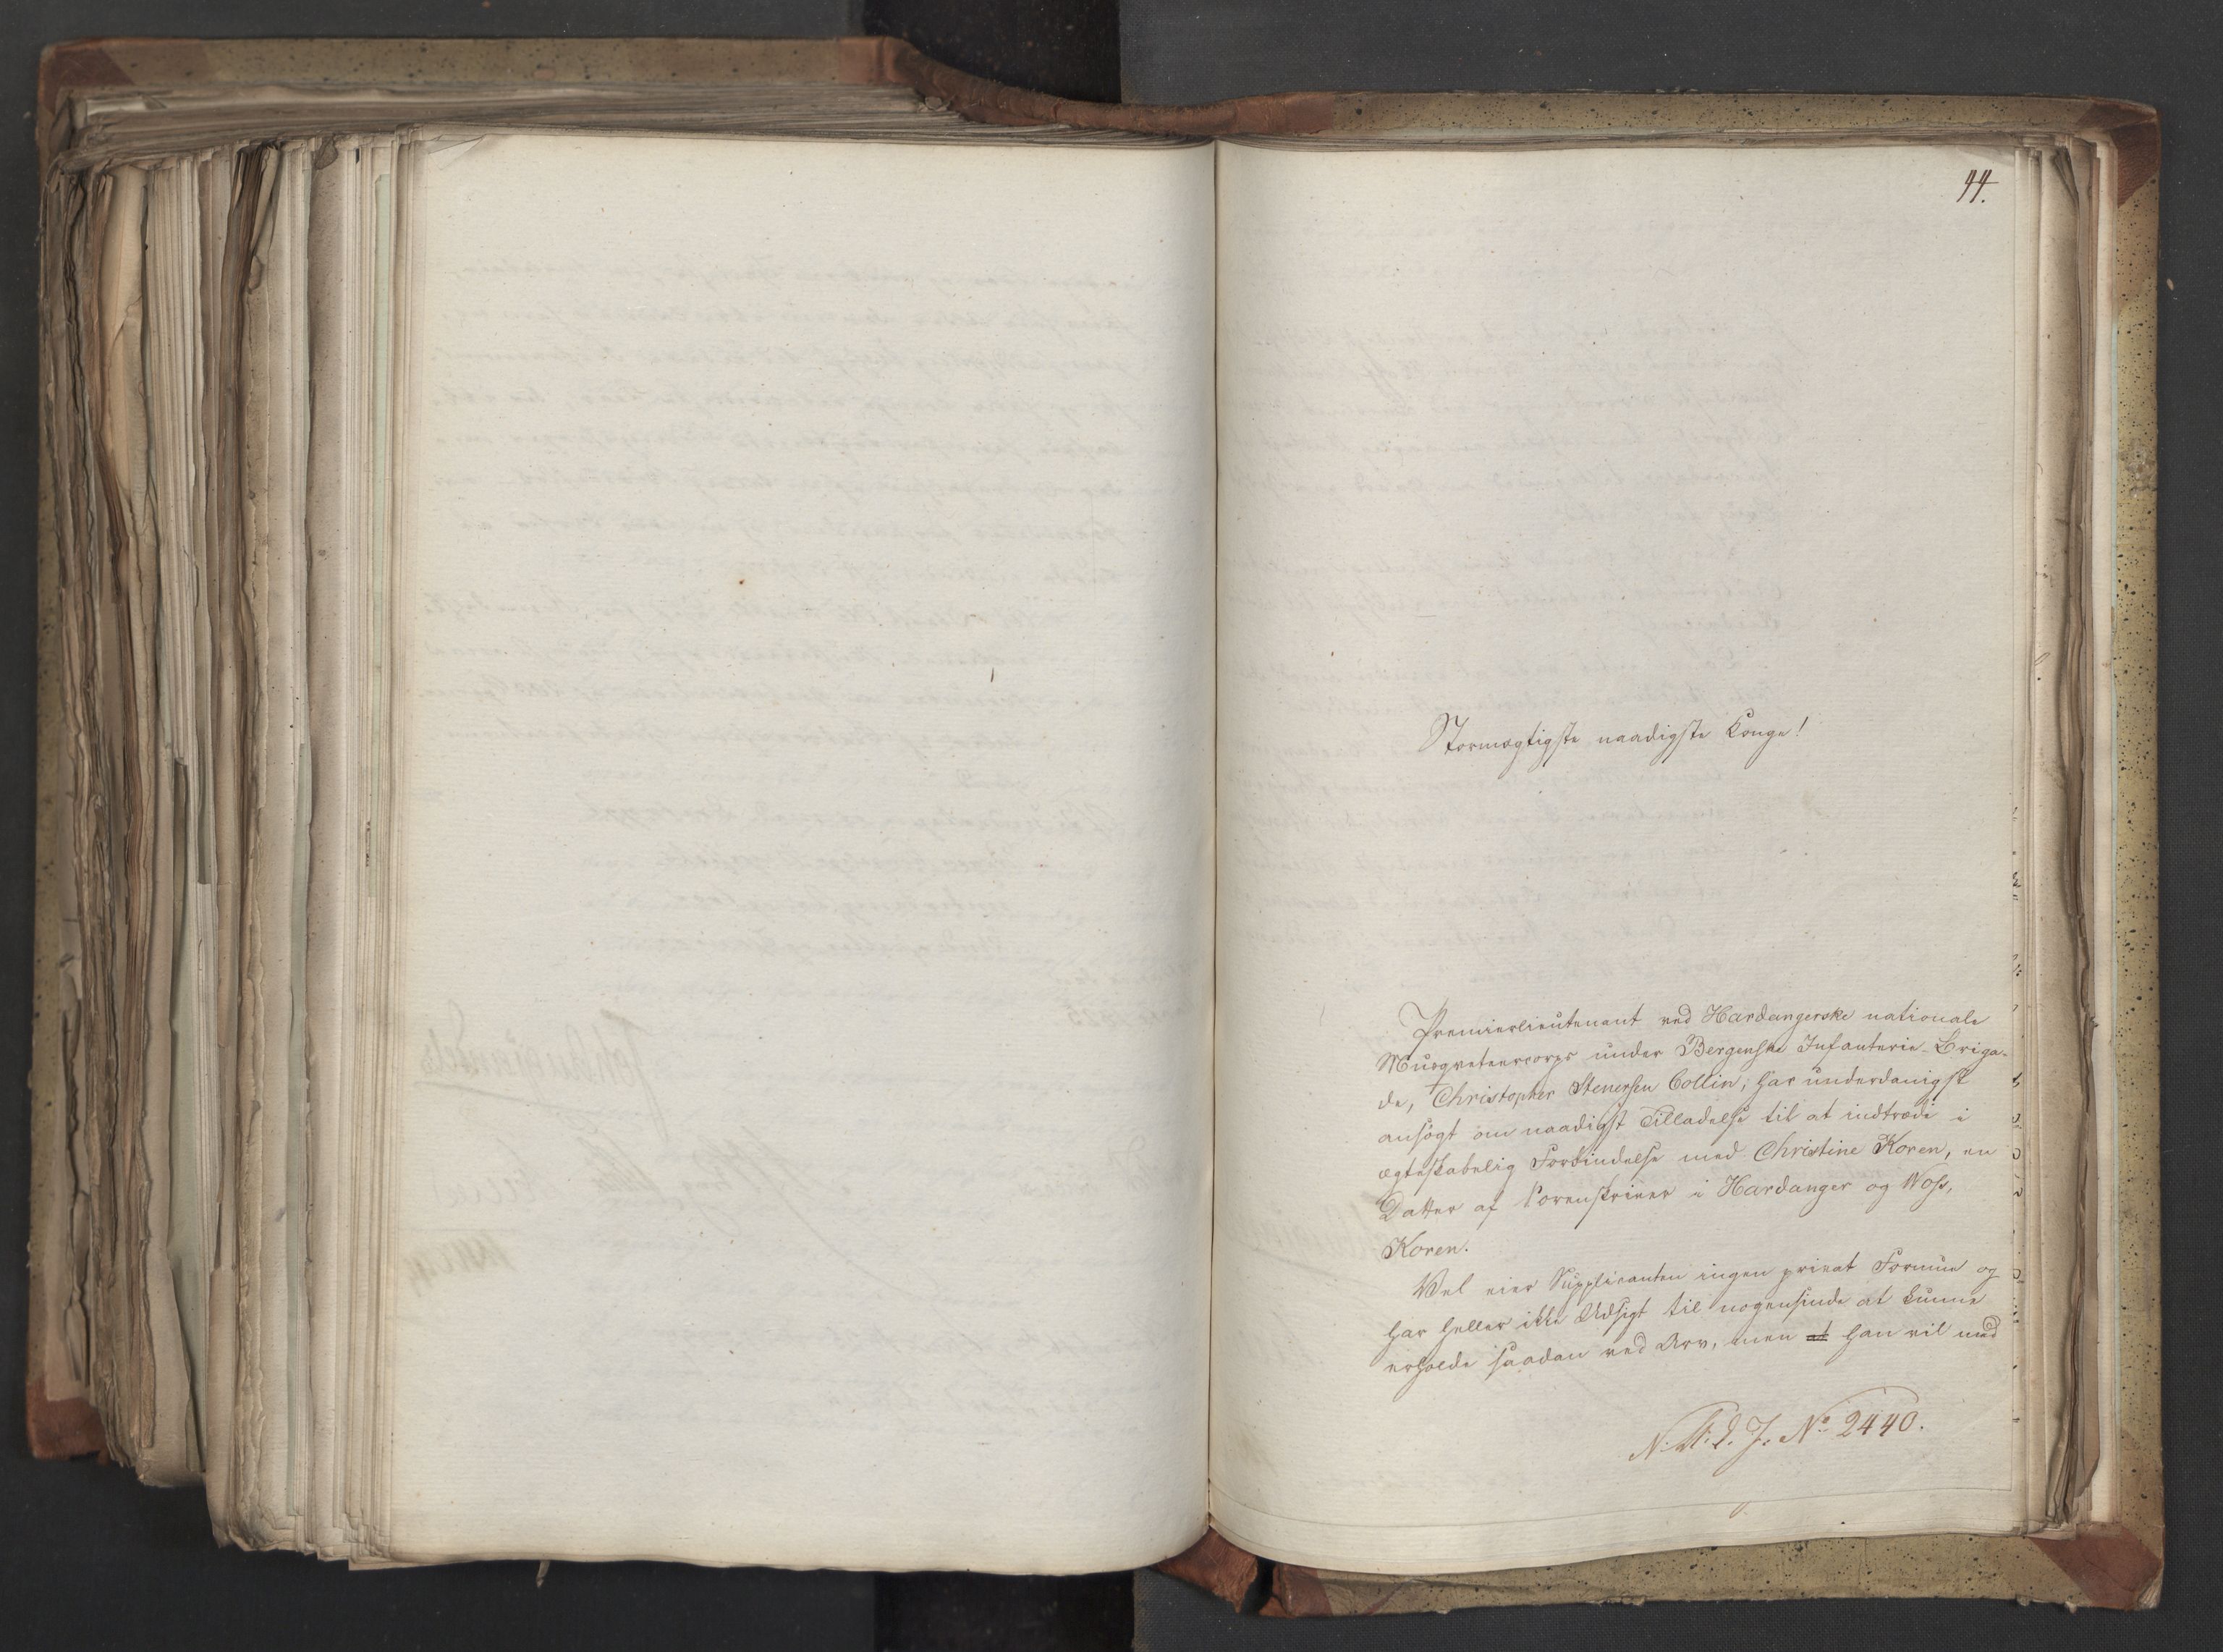 44.
Stormægtigste naadigste Konge!
Premierlieutenant ved Hardangerske nationale
Musqueteercorps under Bergenske Infanterie-Briga-
de, Christopher Stenersen Collin, har underdanigst
ansøgt om naadigst Tilladelse til at indtræde i
ægteskabelig Forbindelse med Christine Koren, en
Datter af Sorenskriver i Hardanger og Woss,
Koren.
Vel eier Supplicanten ingen privat Formue og
har heller ikke Udsigt til nogensinde at kunne
erholde saadan ved Arv, men at han vil med
N: A: d. J. No 2440.